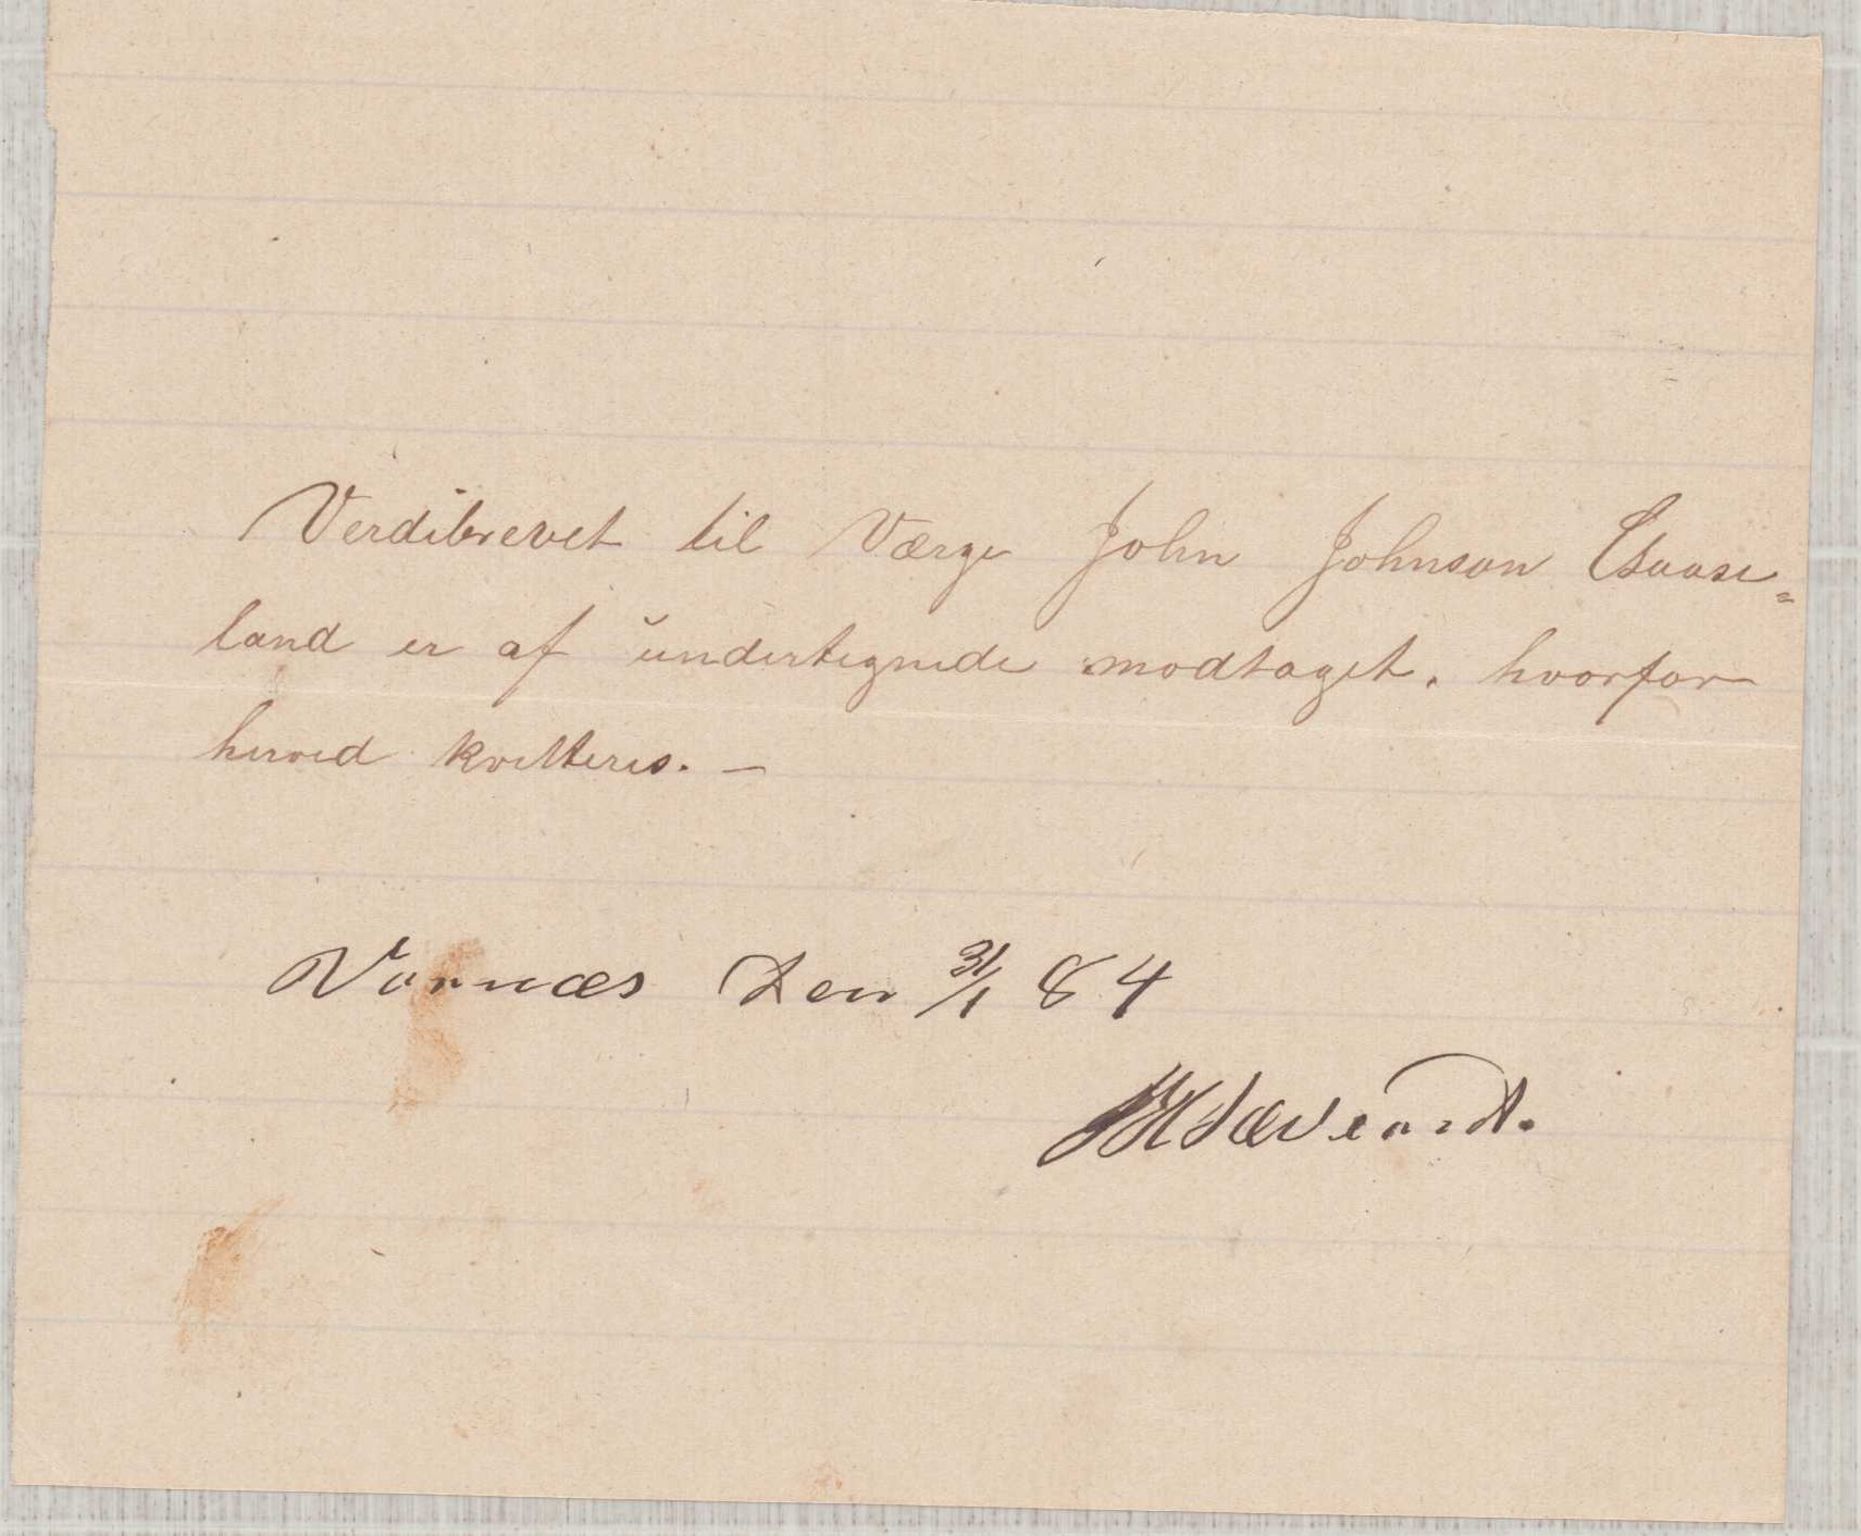 Verdibrevet til Værge John Johnson
land er af undertegnede modtaget, hvorfor
herved kvitteres. —
Vornæs den 31/1 84